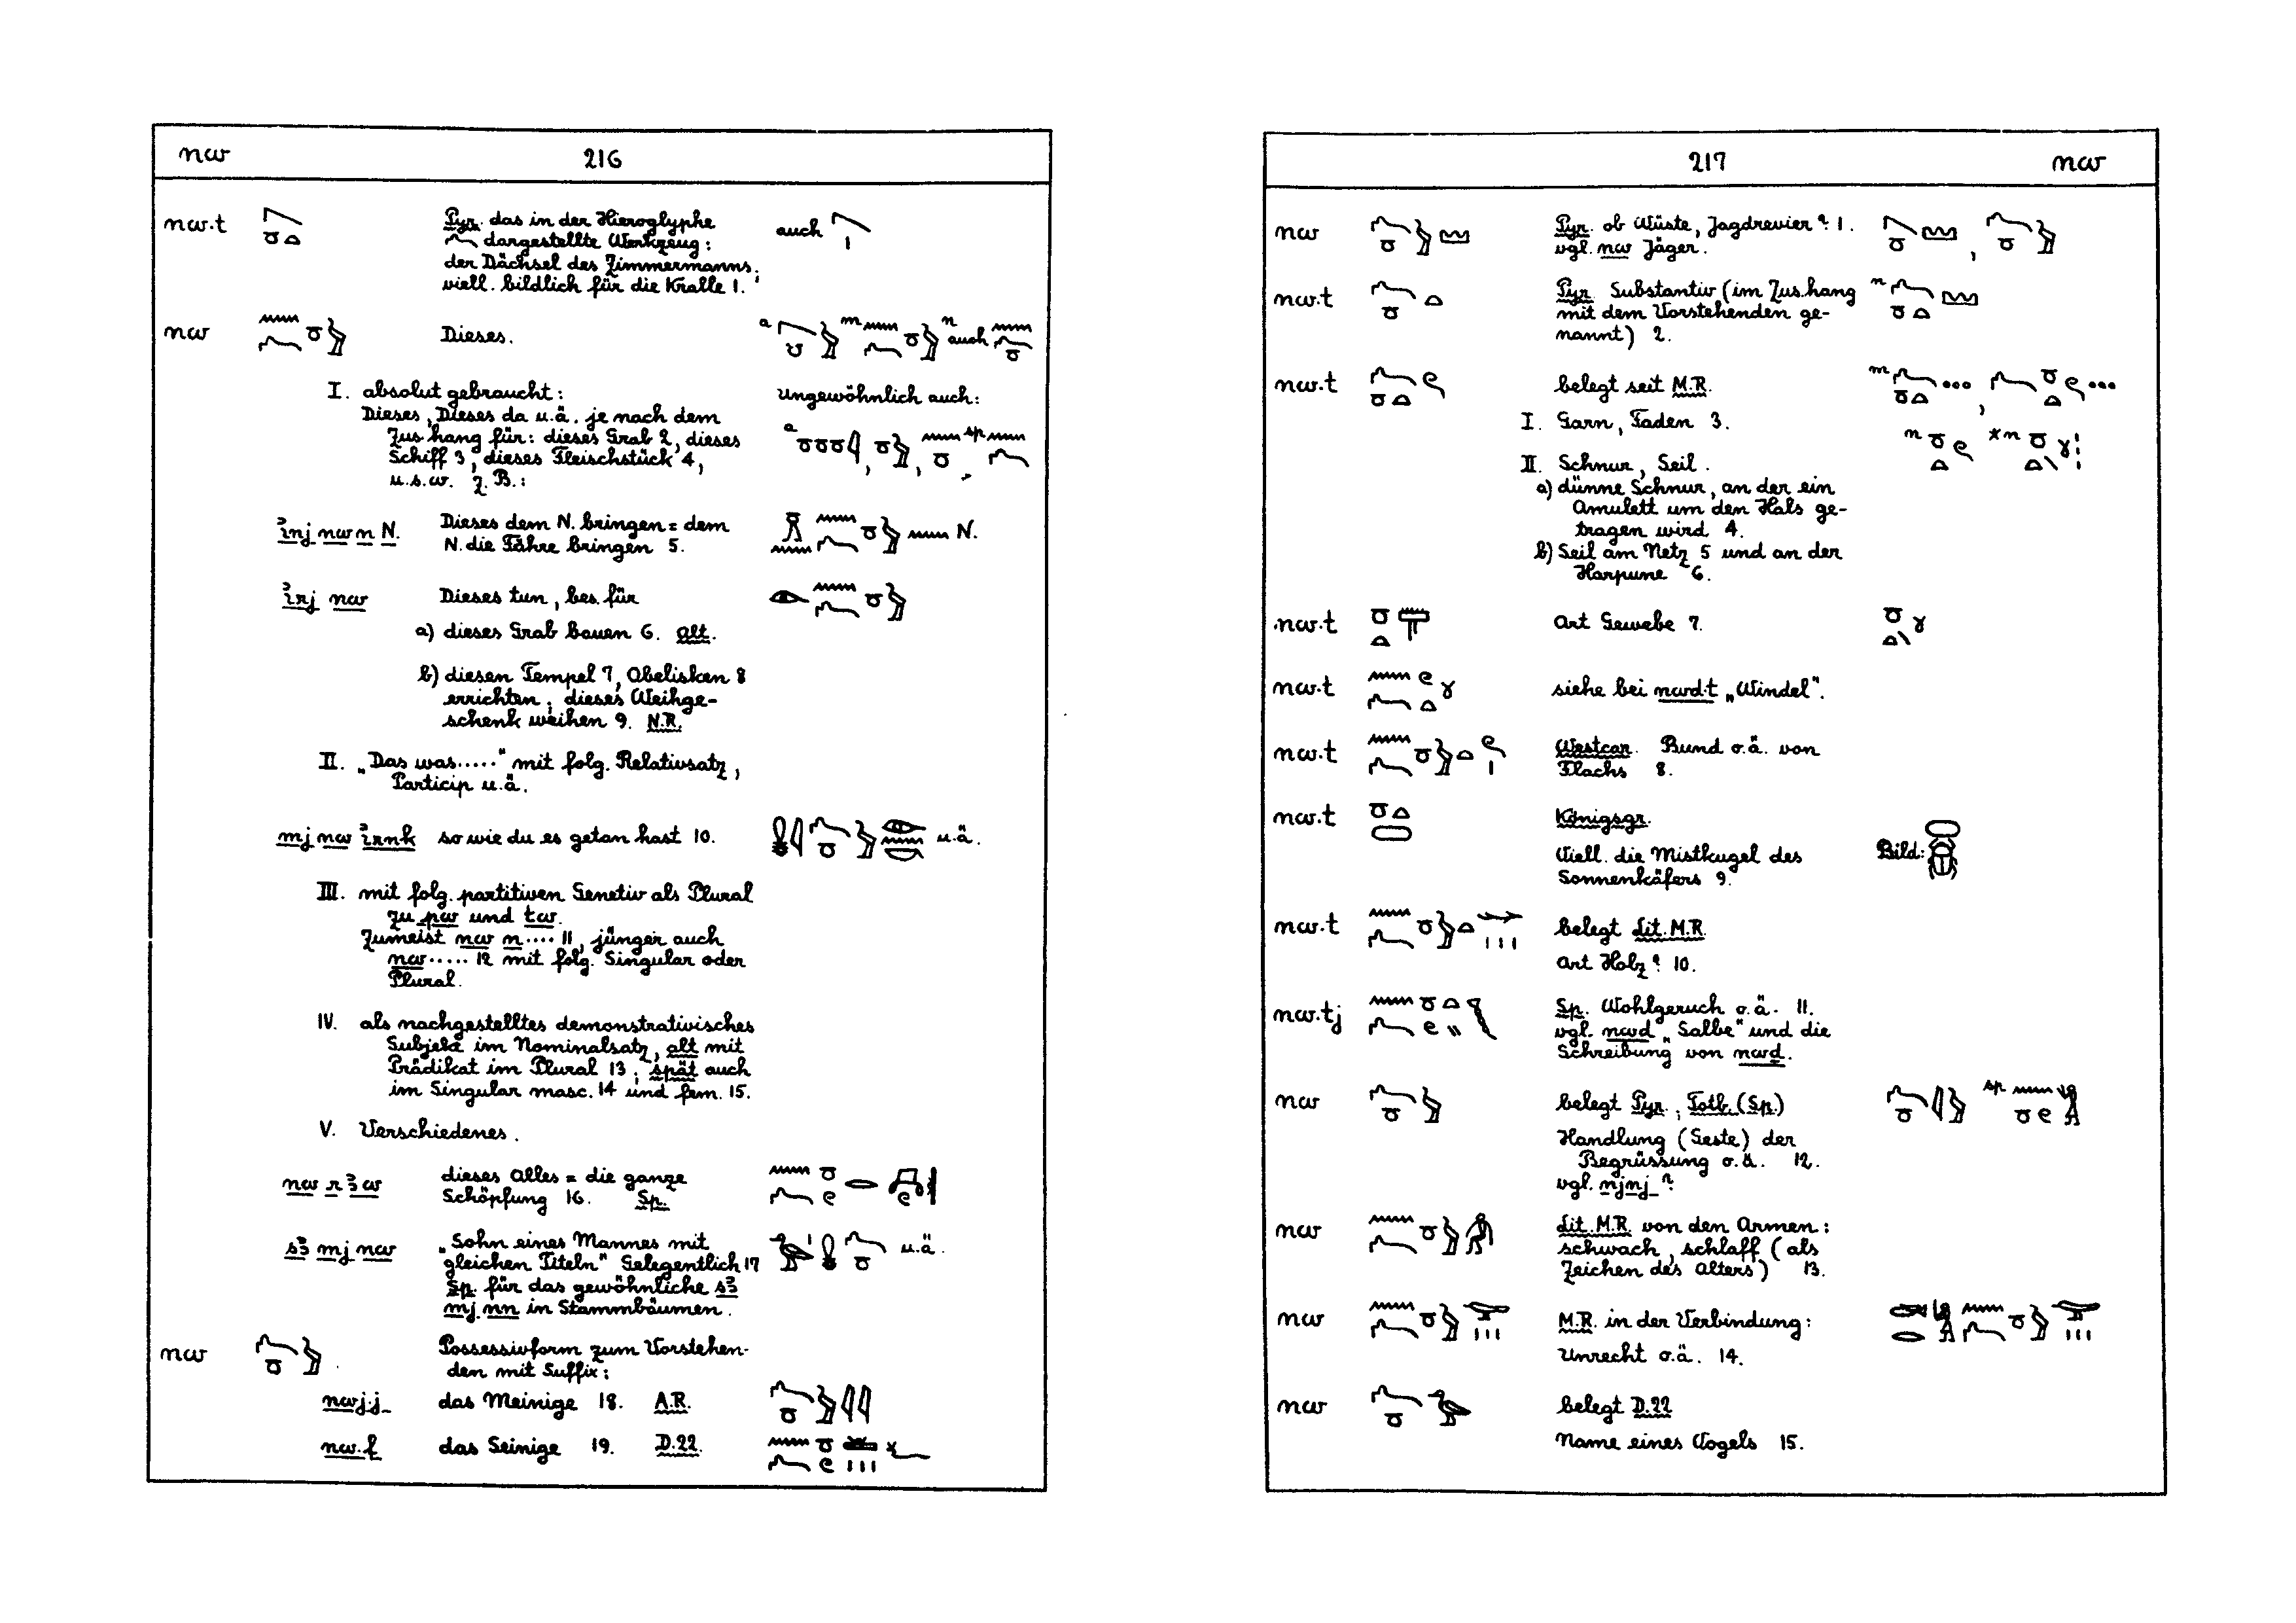 nw 216
nw.t Pyr. das in der Hieroglyphe auch
dargestellte Werkzeug:
der Dächsel des Zimmermanns;
viell. bildlich für die Kralle 1.
nw Dieses. a m n auch
I. absolut gebraucht: Ungewöhnlich auch:
Dieses, Dieses da u.ä. je nach dem
Zus.hang für: dieses Grab 2, dieses a sp
Schiff 3, dieses Fleischstück 4,
u.s.w. Z.B.:
ỉnj nw n N. Dieses dem N. bringen = dem N.
N. die Fähre bringen 5.
ỉrj nw Dieses tun, bes. für
a) dieses Grab bauen 6. alt.
b) diesen Tempel 7, Obelisken 8
errichten; dieses Weihge-
schenk weihen 9. N.R.
II. „Das was....." mit folg. Relativsatz,
Particip u.ä.
mj nw ỉrnk so wie du es getan hast 10. u.ä.
III. mit folg. partitiven Genetiv als Plural
zu pw und tw.
Zumeist nw n.... 11, jünger auch
nw..... 12 mit folg. Singular oder
Plural.
IV. als nachgestelltes demonstrativisches
Subjekt im Nominalsatz, alt mit
Prädikat im Plural 13; spät auch
im Singular masc. 14 und fem. 15.
V. Verschiedenes.
nw r ꜣ w dieses Alles = die ganze
Schöpfung 16. Sp.
sꜣ mj nw „Sohn eines Mannes mit u.ä.
gleichen Titeln" Gelegentlich 17
Sp. für das gewöhnliche sꜣ
mj nn in Stammbäumen.
nw Possessivform zum Vorstehen-
den mit Suffix:
nwj.j das Meinige 18. A.R.
nw.f das Seinige 19. D.22.
217 nw
nw Pyr. ob Wüste, Jagdrevier? 1. ,
vgl. nw Jäger.
nw.t Pyr. Substantiv (im Zus.hang n
mit dem Vorstehenden ge-
nannt) 2.
nw.t belegt seit M.R. m ,
I. Garn, Faden 3. n *n
II. Schnur, Seil.
a) dünne Schnur, an der ein
Amulett um den Hals ge-
tragen wird 4.
b) Seil am Netz 5 und an der
Harpune 6.
nw.t Art Gewebe 7.
nw.t siehe bei nwd.t „Windel".
nw.t Westcar. Bund o.ä. von
Flachs 8.
nw.t Königsgr.
Viell. die Mistkugel des Bild:
Sonnenkäfers 9.
nw.t belegt Lit. M.R.
Art Holz? 10.
nw.tj Sp. Wohlgeruch o.ä. 11.
vgl. nwd „Salbe" und die
Schreibung von nwd.
nw belegt Pyr.; Totb. (Sp.) sp
Handlung (Geste) der
Begrüssung o.ä. 12.
vgl. njnj ?
nw Lit. M.R. von den Armen:
schwach, schlaff (als
Zeichen des Alters) 13.
nw M.R. in der Verbindung:
Unrecht o.ä. 14.
nw belegt D.22
Name eines Vogels 15.